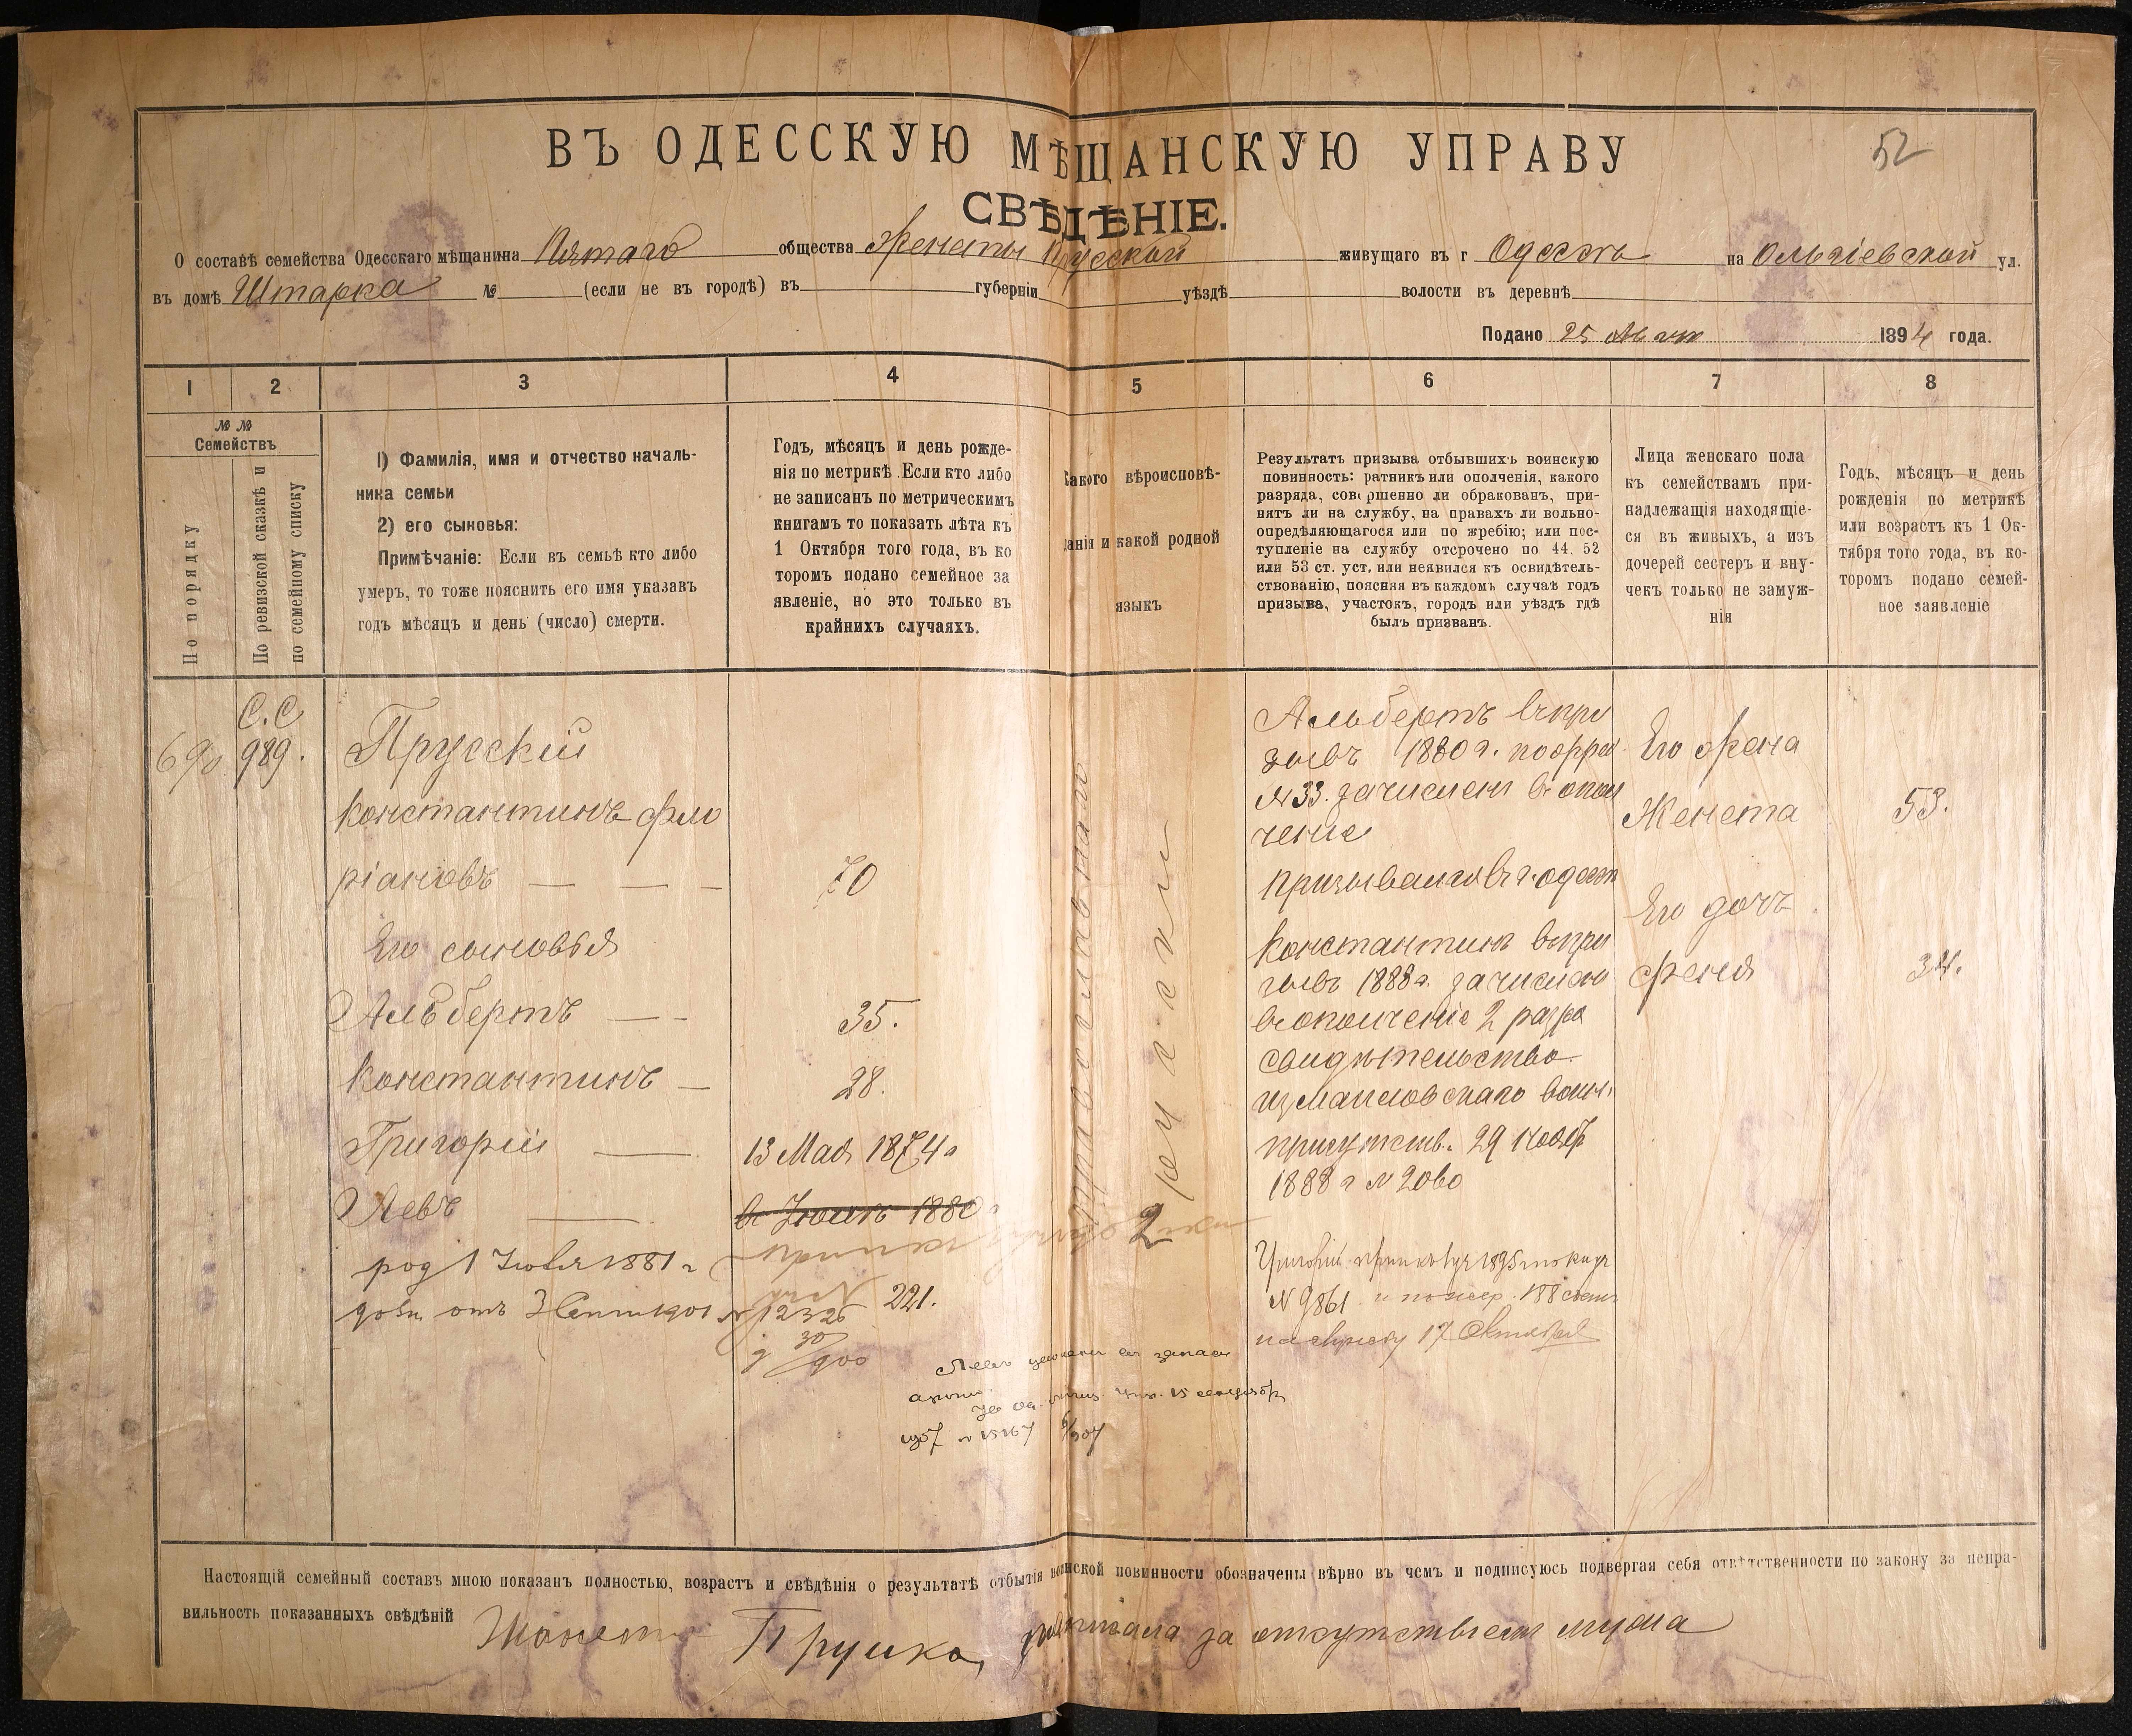 52
ВЪ ОДЕССКУЮ МѢЩАНСКУЮ УПРАВУ
СВѢДѢНІЕ.
О составѣ семейства Одесскаго мѣщанина Пятаго общества Женеты Прусской живущаго въ г Одессѣ на Ольгіевской ул.
въ домѣ Штарка № (если не въ городѣ) въ губерніи уѣздѣ волости въ деревнѣ
Подано 25 1894 года.
1 2 3 4 5 6 7 8
№ №
Семействъ
По порядку
По ревизской сказкѣ и
по семейному списку
1) Фамилія, имя и отчество началь-
ника семьи
2) его сыновья:
Примѣчаніе: Если въ семьѣ кто либо
умеръ, то тоже пояснить его имя указавъ
годъ мѣсяцъ и день (число) смерти.
Годъ, мѣсяцъ и день рожде-
нія по метрикѣ. Если кто либо
не записанъ по метрическимъ
книгамъ то показать лѣта къ
1 Октября того года, въ ко
торомъ подано семейное за
явленіе, но это только въ
крайнихъ случаяхъ.
Какого вѣроисповѣ-
данія и какой родной
языкъ
Результатъ призыва отбывшихъ воинскую
повинность: ратникъ или ополченія, какого
разряда, совершенно ли обракованъ, при-
нятъ ли на службу, на правахъ ли вольно-
опредѣляющагося или по жребію; или пос-
тупленіе на службу отсрочено по 44, 52
или 53 ст. уст. или неявился къ освидѣтель-
ствованію, поясняя въ каждомъ случаѣ годъ
призыва, участокъ, городъ или уѣздъ гдѣ
былъ призванъ.
Лица женскаго пола
къ семействамъ при-
надлежащія находящіе-
ся въ живыхъ, а изъ
дочерей сестеръ и вну-
чекъ только не замуж-
нія
Годъ, мѣсяцъ и день
рожденія по метрикѣ
или возрастъ къ 1 Ок-
тября того года, въ ко-
торомъ подано семей-
ное заявленіе
С.С
690 989.
Прусскій
Константинъ Фло
ріановъ
Его сыновья
Альбертъ
Константинъ
Григорій
Левъ
род 1 1881 г
отъ 3 Сент 1901 № 12326
70
35.
28.
13 Мая 1874 г
въ 1880 г
221.
30/900
Левъ запас
арміи
15 сентября
№ 15267
православнаго
русскій
2
Альбертъ въ при
зывъ 1880 г. по
№ 33. зачисленъ въ опол
ченіе
Призывался въ г. Одессѣ
Константинъ въ при
зывъ 1888 г. зачисленъ
въ ополченіе 2 разря
свидѣтельство
Измаиловскаго воин.
присутств. 29 Ноябр
1888 г № 2060
Григорій 1895
№ 9861
17 Октября
Его жена
Женета
Его дочь
Феня
53.
34.
Настоящій семейный составъ мною показанъ полностью, возрастъ и свѣдѣнія о результатѣ отбытія воинской повинности обозначены вѣрно въ чемъ и подписуюсь подвергая себя отвѣтственности по закону за непра-
вильность показанныхъ свѣдѣній Прушка, подписала за отсутствіемъ мужа